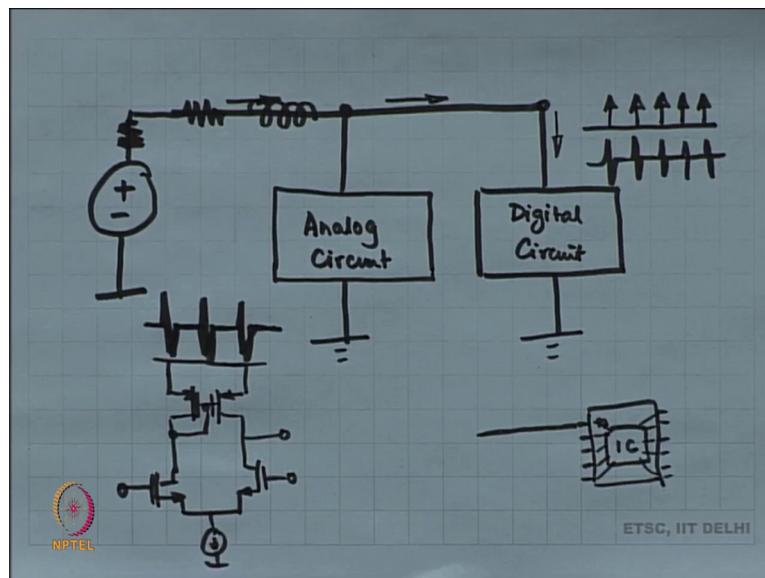 +
-
Analog
Circuit
Digital
Circuit
IC
NPTEL
ETSC, IIT DELHI